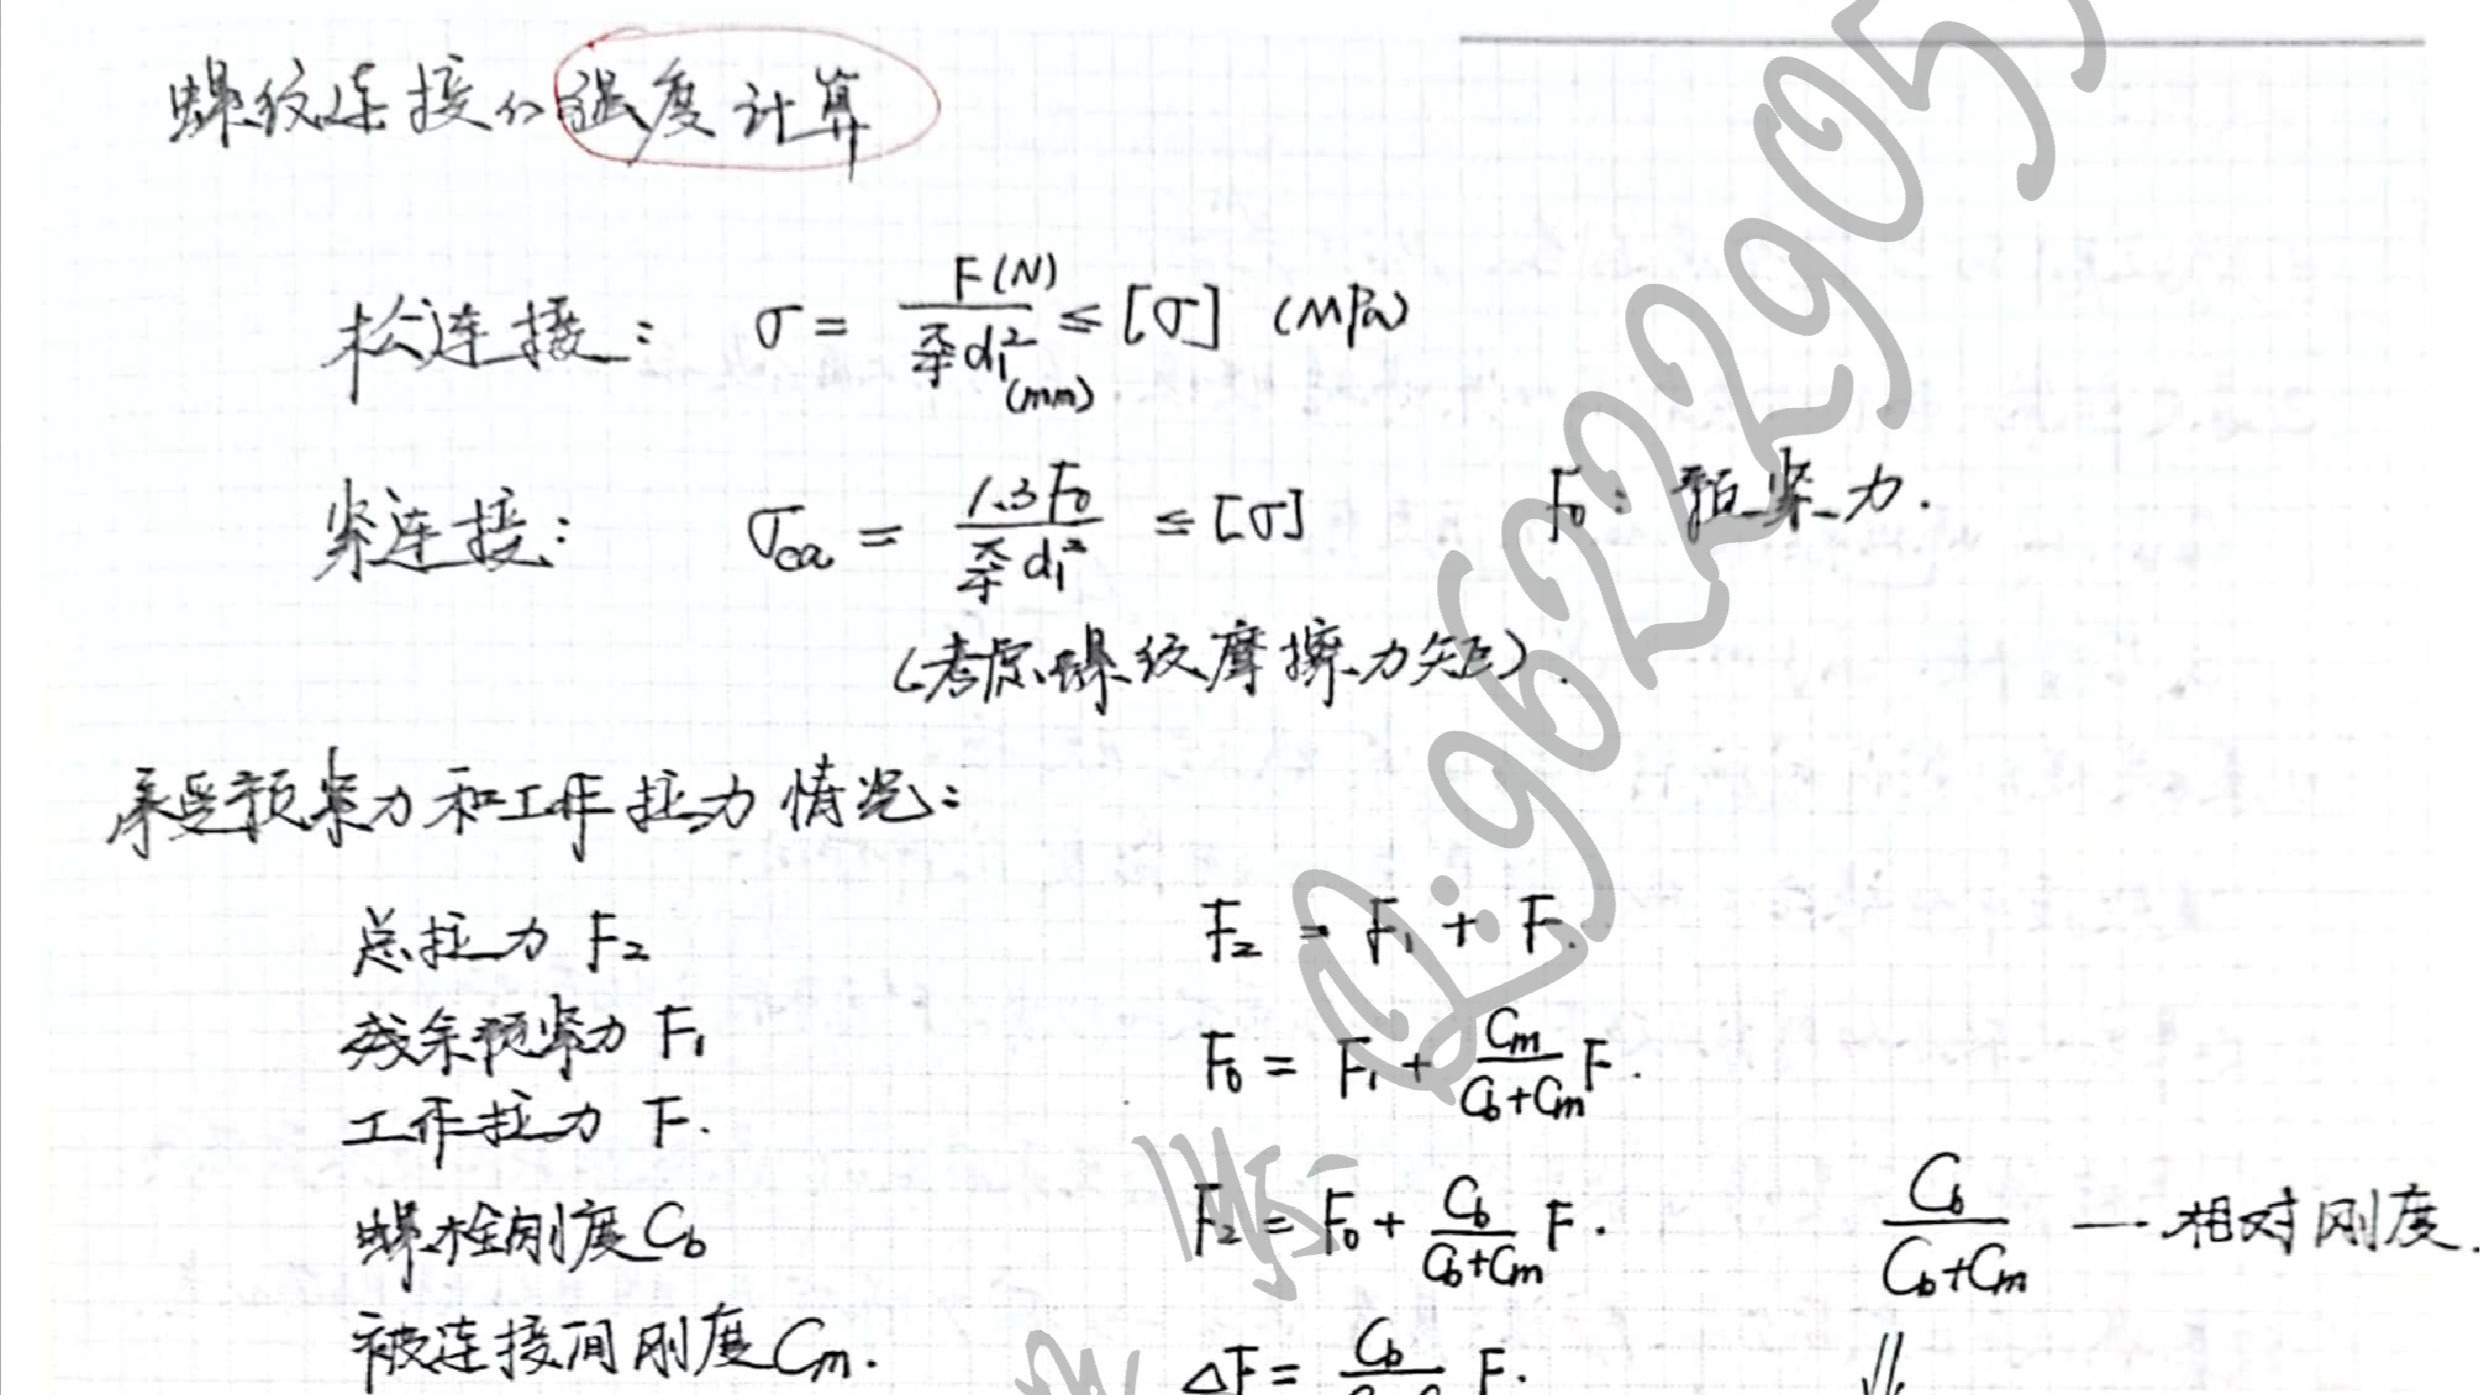 螺纹连接的强度计算
松连接: σ = F(N) / (π/4 d₁²(mm)) ≤ [σ] (MPa)
紧连接: σca = 1.3F₀ / (π/4 d₁²) ≤ [σ] F₀: 预紧力.
(考虑螺纹摩擦力矩).
承受预紧力和工作拉力情况:
总拉力 F₂ F₂ = F₁ + F.
残余预紧力 F₁ F₀ = F₁ + Cm/(Cb+Cm) F.
工作拉力 F.
螺栓刚度 Cb F₂ = F₀ + Cb/(Cb+Cm) F. Cb/(Cb+Cm) — 相对刚度.
被连接间刚度 Cm. ΔF = Cb F.
Q:9622905